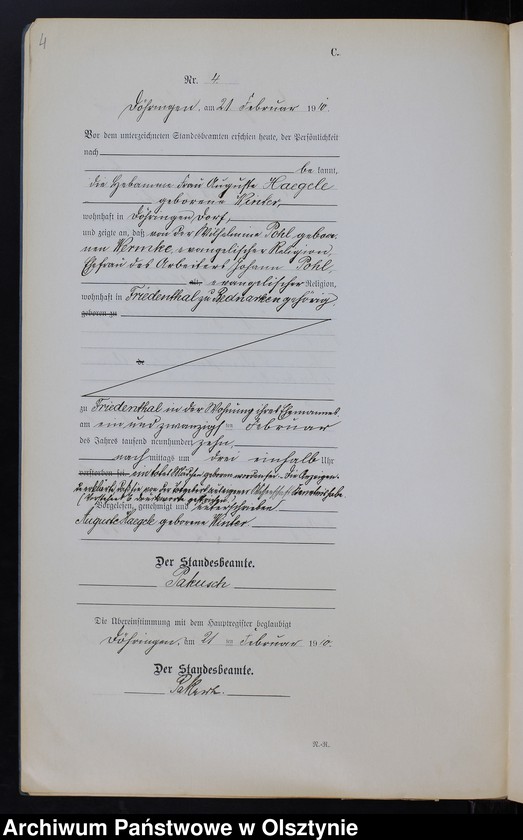 4
C.
Nr. 4.
Döhringen, am 21 Februar 1910.
Vor dem unterzeichneten Standesbeamten erschien heute, der Persönlichkeit
nach
be kannt,
die Hebamme Frau Auguste Haegele
geborene Winter,
wohnhaft in Döhringen, Dorf,
und zeigte an, daß von der Wilhelmine Pohl, gebor
nen Wernicke, evangelischer Religion,
Ehefrau des Arbeiters Johann Pohl,
evangelischer Religion,
wohnhaft in Friedenthal zu Bednarken gehörig
geboren zu
de
zu Friedenthal in der Wohnung ihres Ehemannes,
am ein und zwanzigs ten Februar
des Jahres tausend neunhundert zehn,
nach mittags um drei einhalb Uhr
verstorben sei, ein totes Mädchen geboren worden sei. Die Anzeigen
de erklärte, daß sie von der
Vorstehend
Vorgelesen, genehmigt und unterschrieben
Auguste Haegele geborene Winter
Der Standesbeamte.
Die Übereinstimmung mit dem Hauptregister beglaubigt
Döhringen, am 21 ten Februar 1910.
Der Standesbeamte.
N.-R.
Archiwum Państwowe w Olsztynie